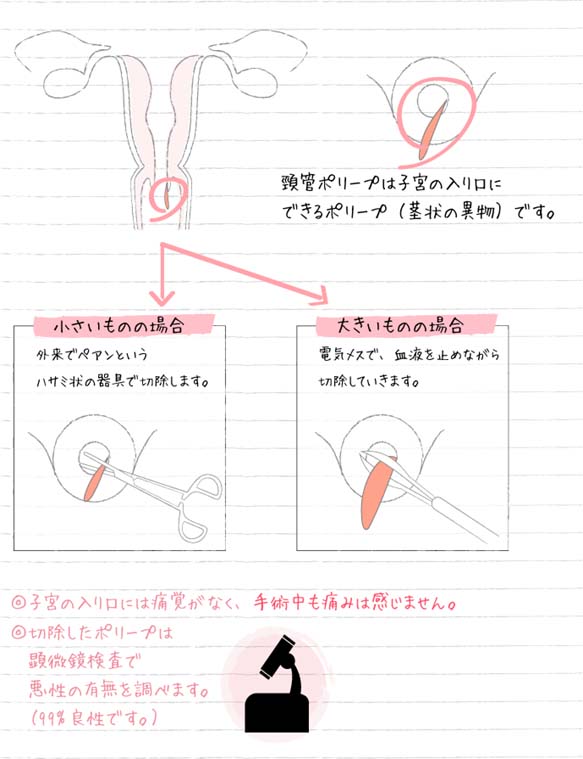 頸管ポリープは子宮の入り口に
できるポリープ（茎状の異物）です。
小さいものの場合
外来でペアンという
ハサミ状の器具で切除します。
大きいものの場合
電気メスで、血液を止めながら
切除していきます。
◎子宮の入り口には痛覚がなく、手術中も痛みは感じません。
◎切除したポリープは
顕微鏡検査で
悪性の有無を調べます。
（99%良性です。）